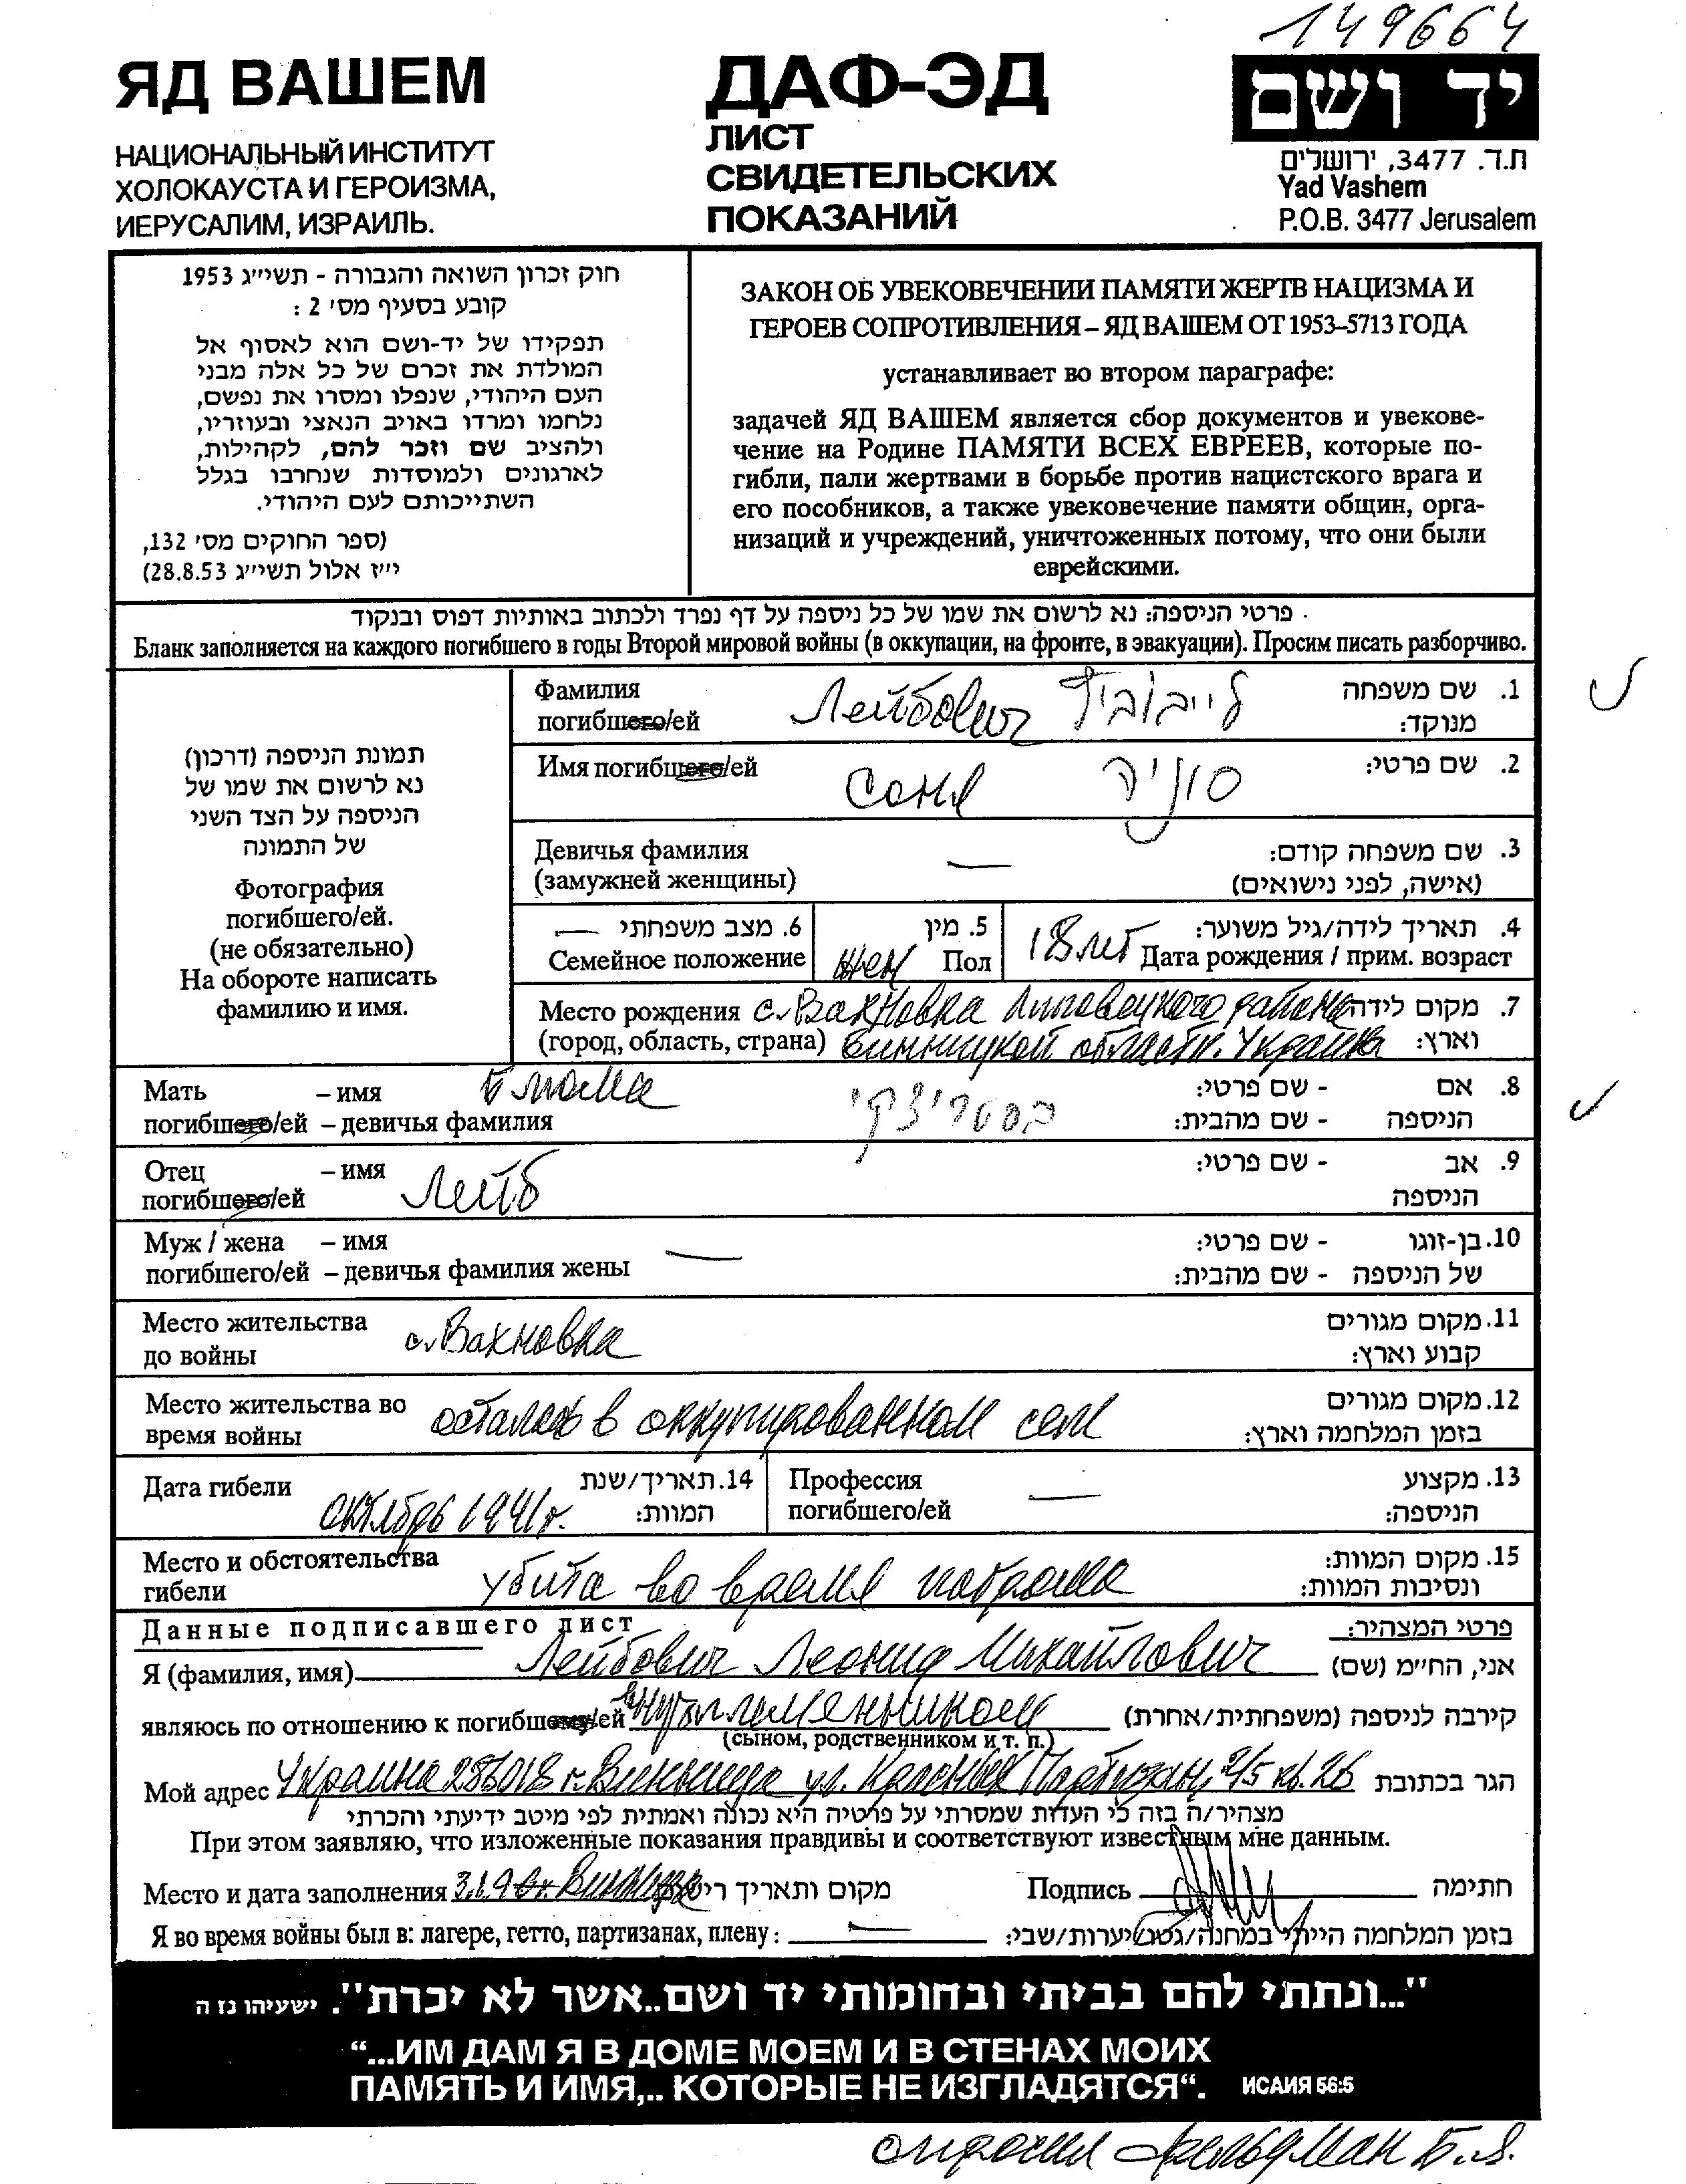 149664
ЯД ВАШЕМ
НАЦИОНАЛЬНЫЙ ИНСТИТУТ
ХОЛОКАУСТА И ГЕРОИЗМА,
ИЕРУСАЛИМ, ИЗРАИЛЬ.
ДАФ-ЭД
ЛИСТ
СВИДЕТЕЛЬСКИХ
ПОКАЗАНИЙ
יד ושם
ת.ד. 3477, ירושלים
Yad Vashem
P.O.B. 3477 Jerusalem
חוק זכרון השואה והגבורה - תשי״ג 1953
קובע בסעיף מס׳ 2 :
תפקידו של יד-ושם הוא לאסוף אל
המולדת את זכרם של כל אלה מבני
העם היהודי, שנפלו ומסרו את נפשם,
נלחמו ומרדו באויב הנאצי ובעוזריו,
ולהציב שם וזכר להם, לקהילות,
לארגונים ולמוסדות שנחרבו בגלל
השתייכותם לעם היהודי.
(ספר החוקים מס׳ 132,
י״ז אלול תשי״ג 28.8.53)
ЗАКОН ОБ УВЕКОВЕЧЕНИИ ПАМЯТИ ЖЕРТВ НАЦИЗМА И
ГЕРОЕВ СОПРОТИВЛЕНИЯ – ЯД ВАШЕМ ОТ 1953–5713 ГОДА
устанавливает во втором параграфе:
задачей ЯД ВАШЕМ является сбор документов и увекове-
чение на Родине ПАМЯТИ ВСЕХ ЕВРЕЕВ, которые по-
гибли, пали жертвами в борьбе против нацистского врага и
его пособников, а также увековечение памяти общин, орга-
низаций и учреждений, уничтоженных потому, что они были
еврейскими.
פרטי הניספה: נא לרשום את שמו של כל ניספה על דף נפרד ולכתוב באותיות דפוס ובנקוד
Бланк заполняется на каждого погибшего в годы Второй мировой войны (в оккупации, на фронте, в эвакуации). Просим писать разборчиво.
תמונת הניספה (דרכון)
נא לרשום את שמו של
הניספה על הצד השני
של התמונה
Фотография
погибшего/ей.
(не обязательно)
На обороте написать
фамилию и имя.
Фамилия Лейбович לייבוביץ 1. שם משפחה
погибшего/ей מנוקד:
Имя погибшего/ей Соня סוניה 2. שם פרטי:
Девичья фамилия — 3. שם משפחה קודם:
(замужней женщины) (אישה, לפני נישואים)
6. מצב משפחתי —
Семейное положение
5. מין
Пол жен
4. תאריך לידה/גיל משוער:
18 лет Дата рождения / прим. возраст
Место рождения с. Вахновка Липовецкого района 7. מקום לידה
(город, область, страна) Винницкой области. Украина וארץ:
Мать – имя Блюма 8. אם - שם פרטי:
погибшего/ей – девичья фамилия הניספה - שם מהבית:
Отец – имя Лейб 9. אב - שם פרטי:
погибшего/ей הניספה
Муж / жена – имя — 10. בן-זוגו - שם פרטי:
погибшего/ей – девичья фамилия жены של הניספה - שם מהבית:
Место жительства с. Вахновка 11. מקום מגורים
до войны קבוע וארץ:
Место жительства во осталась в оккупированном селе 12. מקום מגורים
время войны בזמן המלחמה וארץ:
Дата гибели октябрь 1941г. 14. תאריך/שנת
המוות:
Профессия — 13. מקצוע
погибшего/ей הניספה:
Место и обстоятельства убита во время погрома 15. מקום המוות:
гибели ונסיבות המוות:
Данные подписавшего лист פרטי המצהיר:
Я (фамилия, имя) Лейбович Леонид Михайлович אני, הח״מ (שם)
являюсь по отношению к погибшему/ей קירבה לניספה (משפחתית/אחרת)
(сыном, родственником и т. п.)
Мой адрес Украина 286018 г. Винница ул. Красных Партизан, 2/5 кв. 26 הגר בכתובת
מצהיר/ה בזה כי העדות שמסרתי על פרטיה היא נכונה ואמתית לפי מיטב ידיעתי והכרתי
При этом заявляю, что изложенные показания правдивы и соответствуют известным мне данным.
Место и дата заполнения Винница מקום ותאריך רישום Подпись חתימה
Я во время войны был в: лагере, гетто, партизанах, плену: — בזמן המלחמה הייתי במחנה/גטו/יערות/שבי:
"...ונתתי להם בביתי ובחומותי יד ושם..אשר לא יכרת". ישעיהו נז ה
“...ИМ ДАМ Я В ДОМЕ МОЕМ И В СТЕНАХ МОИХ
ПАМЯТЬ И ИМЯ,.. КОТОРЫЕ НЕ ИЗГЛАДЯТСЯ“. ИСАИЯ 56:5
опросил Фельдман Б.Я.